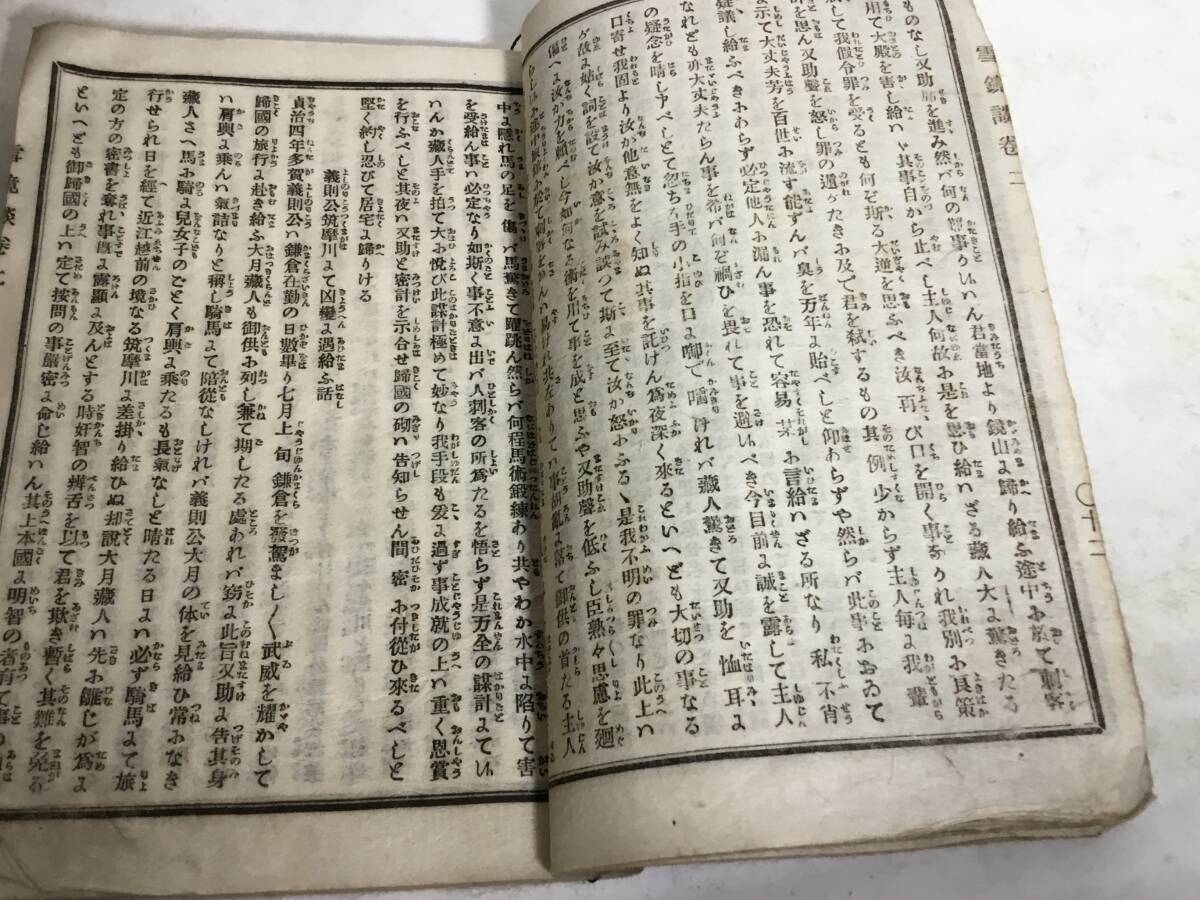 雪鏡談卷二
〇十二
ものなし又助膝を進み然バ何の難事りハん君當地より鏡山よ歸り給ふ途中お於て刺客
用て大殿を害し給ハヾ其事自から止べし主人何故お是を思ひ給ハざる藏人大よ驚きたる
して我假令罪を受るとも何を斯る大逆を思ふべき汝再び口を開く事なかれ我別お良策
を思ん又助聲を怒し罪の遁がたきお及で君を弑するもの其例少からず主人毎よ我輩
疑議し給ふべきあらず必定他人お漏ん事を恐れて容易よお言給ハざる所なり私不肖
よ示て大丈夫芳を百世お流す能ずんバ臭を万年よ貽べしと仰あらずや然らバ此事おおゐて
なれども亦大丈夫たらん事を希バ何ぞ禍ひを畏れて事を避いべき今目前よ誠を露して主人
の疑念を晴しアべしとて忽ち左手の小指を口よ啣で嚙けれバ藏人驚きて又助を恤耳よ
口寄せ我固より汝が他意無をよく知ぬ其事を託けん爲夜深く來るといへども大切の事なる
ゲ故よ姑く詞を設て汝が意を試み誤つて斯よ至て汝が怒お
ふるゝ是我不明の罪なり此上ハ
偏へよ汝が力を頼べし今如何なる術を用て事を成と思ふや又助聲を低ふし臣熟々思慮を廻
中よ隱れ馬の足を傷バ馬驚きて躍跳ん然らバ何程馬術鍛練あり共やわか水中よ陷りて害
を受給ん事ハ必定なり如斯く事不意よ出バ人刺客の所爲たるを悟らず是万全の謀計よてハ
ハんか藏人手を拍て大お悅び此謀計極めて妙なり我手段も爰よ過ず事成就の上ハ重く恩賞
を行ふべしと其夜ハ又助と密計を示合せ歸國の砌ハ告知らせん間密お付從ひ來るべしと
堅く約し忍びて居宅よ歸りける
義則公筑摩川よて凶變よ遇給ふ話
貞治四年多賀義則公ハ鎌倉在勤の日數畢り七月上旬鎌倉を發駕ましく武威を耀かして
歸國の旅行よ赴き給ふ大月藏人も御供お列し兼て期したる處あれバ窃よ此旨又助よ告其身
ハ肩輿よ乘んハ氣詰なりと稱し騎馬よて陪從なしけれバ義則公大月の体を見給ひ常おなき
藏人さへ馬お騎よ兒女子のごとく肩輿よ乘たるも長氣なしと晴たる日よハ必ず騎馬よて旅
行せられ日を經て近江越前の境なる筑摩川よ差掛り給ひぬ却說大月藏人ハ先お雛じが爲よ
定の方の密書を奪れ事旣よ露顯よ及んとする時奸智の辨舌を以て君を欺き暫く其難を免る
といへども御歸國の上ハ定て按問の事嚴密よ命じ給ハん其上本國よ明智の者有て事の